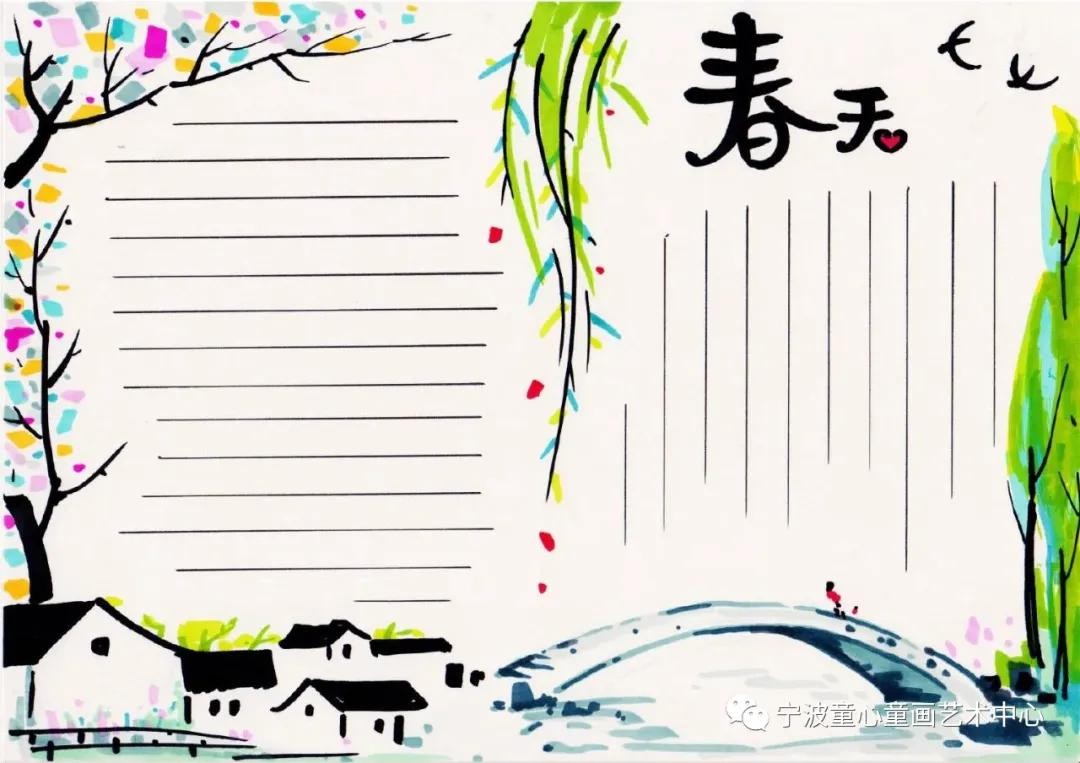 春天
宁波童心童画艺术中心